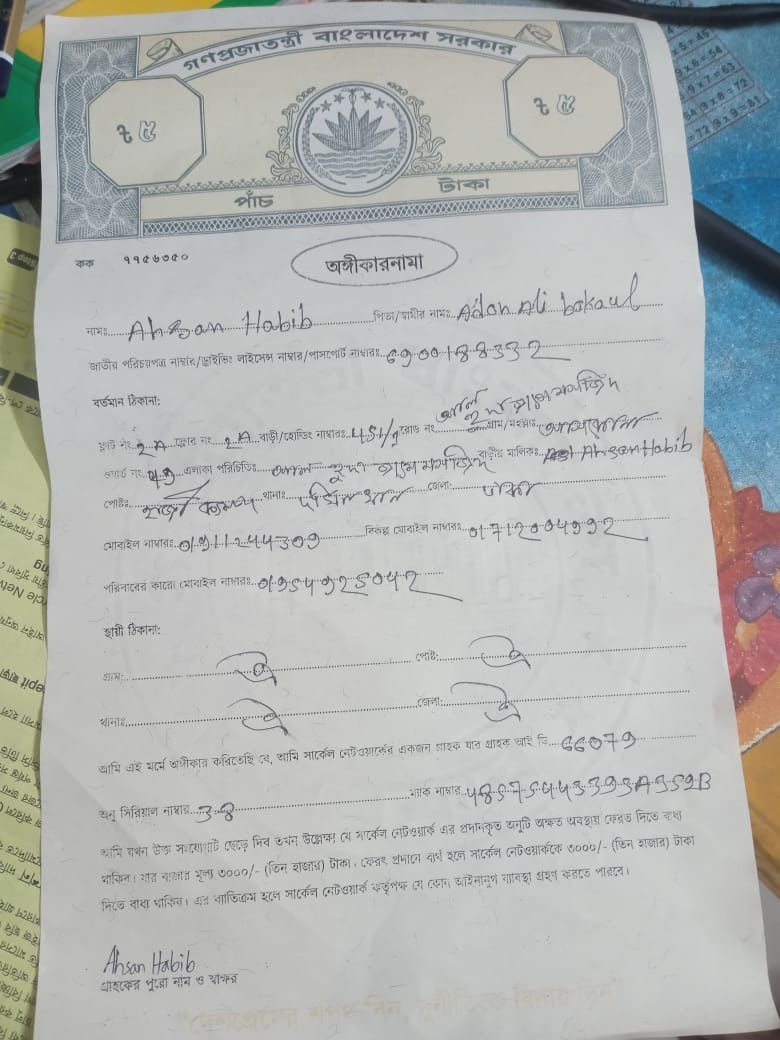 গণপ্রজাতন্ত্রী বাংলাদেশ সরকার
৳ ৫
৳ ৫
পাঁচ টাকা
কক ৭৭৫৬৩৫০
অঙ্গীকারনামা
নামঃ Ahsan Habib পিতা/স্বামীর নামঃ Adon Ali bakaul
জাতীয় পরিচয়পত্র নাম্বার/ড্রাইভিং লাইসেন্স নাম্বার/পাসপোর্ট নাম্বারঃ 6900188332
বর্তমান ঠিকানা:
ফ্লাট নং 2A ফ্লোর নং 2A বাড়ী/হোল্ডিং নাম্বারঃ 451/ রোড নং গ্রাম/মহল্লাঃ
ওয়ার্ড নং 49 এলাকা পরিচিতিঃ বাড়ীর মালিকঃ Ahsan Habib
পোষ্টঃ থানাঃ দক্ষিনখান জেলা: ঢাকা
মোবাইল নাম্বারঃ 01911244309 বিকল্প মোবাইল নাম্বারঃ 01712004992
পরিবারের কারো মোবাইল নাম্বারঃ 01954925042
স্থায়ী ঠিকানা:
গ্রাম: ঐ পোষ্ট: ঐ
থানাঃ ঐ জেলা: ঐ
আমি এই মর্মে অঙ্গীকার করিতেছি যে, আমি সার্কেল নেটওয়ার্কের একজন গ্রাহক যার গ্রাহক আই ডি 66079
অনু সিরিয়াল নাম্বার 38 ম্যাক নাম্বার 48575443393A952B
আমি যখন উক্ত সংযোগটি ছেড়ে দিব তখন উল্লেক্ষ্য যে সার্কেল নেটওয়ার্ক এর প্রদানকৃত অনুটি অক্ষত অবস্থায় ফেরত দিতে বাধ্য
থাকিব। যার বাজার মূল্য ৩০০০/- (তিন হাজার) টাকা। ফেরৎ প্রদানে ব্যর্থ হলে সার্কেল নেটওয়ার্ককে ৩০০০/- (তিন হাজার) টাকা
দিতে বাধ্য থাকিব। এর ব্যতিক্রম হলে সার্কেল নেটওয়ার্ক কর্তৃপক্ষ যে কোন আইনানুগ ব্যাবস্থা গ্রহণ করতে পারবে।
Ahsan Habib
গ্রাহকের পুরো নাম ও স্বাক্ষর
"দেশপ্রেমের শপথ নিন, দুর্নীতিকে বিদায় দিন"